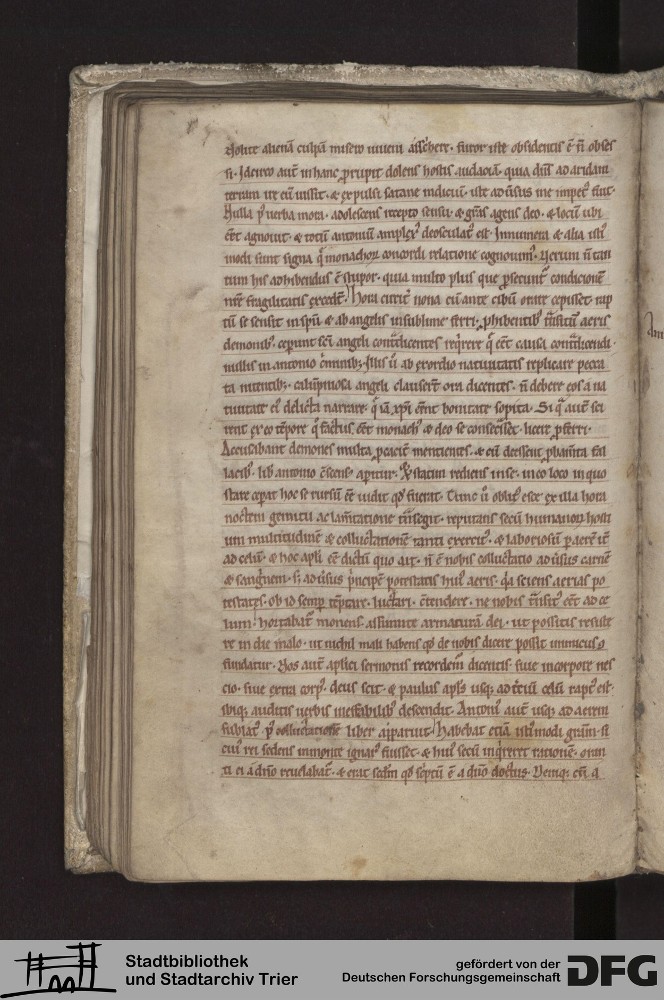 Nolite alienā culpā misero iuueni asscͥbere. furor iste obsidentis ē n̄ obses
si. Idcirco aut̄ in hanc ꝓrupit dolens hostis audaciā. quia dn̄s ad aridam
terram ire eū iussit. & expulsi satane indiciū. iste adūsus me impet᷒ fuit.
Nulla p᷒ uerba mora. adolescens recepto sensu. & gr̄as agens deo. & locū ubi
eēt agnouit. & totū antoniū amplex᷒ deosculat᷒ est. Innumera & alia isti᷒
modi sunt signa q̄ monachoꝝ concordi relatione cognouim᷒. Verum n̄ tan
tum his adhibendus ē stupor. quia multo plus que ꝓsecunt᷒ condicionē
nr̄e fragilitatis excedt̄. Hora circit᷒ nona cū ante cibū orare cepisset. rap
tū se sensit in sp̄u & ab angelis in sublime ferri. ꝓhibentib᷒ t̄nsitū aeris
demonib᷒. ceperunt sc̄i angeli cont̄dicentes reqͥrere q̄ eēt causa cont̄dicendi.
nullis in antonio cͥminib᷒. Illis ū ab exordio natiuitatis replicare pecca
ta nitentib᷒. calūpniosa angeli clauserūt ora dicentes. n̄ debere eos a na
tiuitate ei᷒ delicta narrare. q̄ iā xp̄i eēnt bonitate sopita. Si q̄ aut̄ sci
rent ex eo tēpore q̊ fact᷒ eēt monach᷒ & deo se consecͣsset. licere ꝓferri.
Accusabant demones multa ꝓcacit̄ mentientes. & cū deessent ꝓbam̄ta fal
lacib᷒. lib᷒ antonio cͦscens᷒ aperitur. Et statim rediens in se. in eo loco in quo
stare ceperat hoc se rursū eē uidit qd̄ fuerat. Tunc ū oblit᷒ esce ex illa hora
noctem gemitu ac lam̄tatione t̄nsegit. reputans secū humanoꝝ hosti
um multitudinē & colluctationem tanti exercit᷒. & laboriosū ꝑ aerē it̄
ad celū. & hoc ap̄li eē dictū quo ait. n̄ ē nobis colluctatio adūsus carnē
& sanguinem. s̄ adūsus pͥncipē potestatis hui᷒ aeris. qͥ sciens aerias po
testates. ob id semp̄ tēptare. luctari. cͦtendere. ne nobis t̄nsit᷒ eēt ad ce
lum. hortabat᷒ monens. assumite armaturā dei. ut possitis resiste
re in die malo. ut nichil mali habens qd̄ de nobis dicere possit inimicus cͦ
fundatur. Nos aut̄ aplici sermonis recordem᷒ dicentis. siue in corpore nes
cio. siue extra corp᷒. deus scit. & paulus apl̄s usqꝫ ad tͨtiū celū rapt᷒ est.
ibiqꝫ auditis uerbis ineffabilib᷒ descendit. Antoni᷒ aut̄ usqꝫ ad aerem
sublat᷒ p᷒ colluctationē liber apparuit. Habebat etiā isti᷒modi gr̄am. si
cui᷒ rei sedens in monte ignar᷒ fuisset. & hui᷒ secū inqͥreret rationē. oran
ti ei a dn̄o reuelabat᷒. & erat sed̄m qd̄ scͥptū ē a dn̄o doctus. Deniqꝫ cū a
Stadtbibliothek
und Stadtarchiv Trier
gefördert von der
Deutschen Forschungsgemeinschaft
DFG